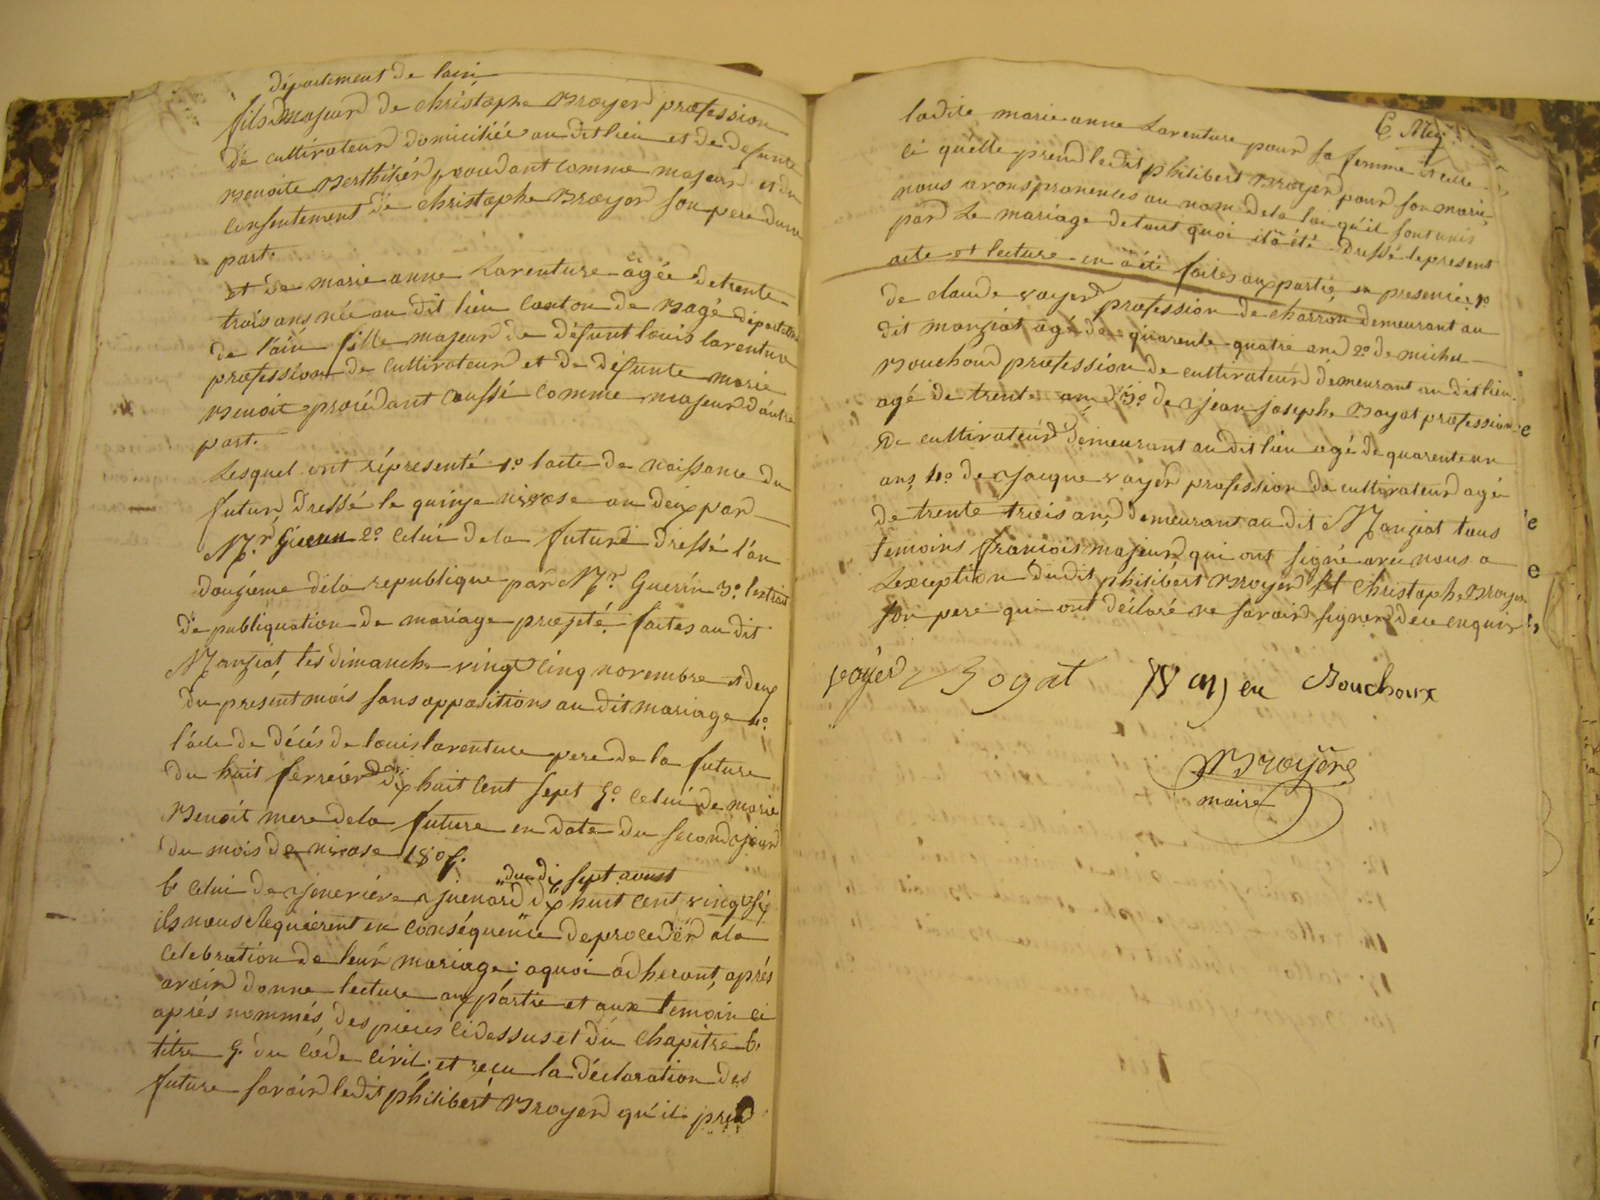 département de lain
fils majeur de christophe Broyer profession
de cultivateur domiciliée au dit lieu et de defunte
Benoite Berthilier, procedant comme majeur et du
consentement de christophe Broyer son pere d'une
part.
et de marie anne Laventure agée de trente
trois ans née au dit lieu canton de Bagé département
de l'ain fille majeur de défunt louis laventure
profession de cultivateur et de défunte marie
Benoit procédant aussi comme majeur d'autre
part.
Lesquel ont réprésenté 1º lacte de naissance du
futur dressé le quinze nivose an deux par
Mr. Guerin 2º celui de la future dressé l'an
douzieme de la republique par Mr. Guerin 3º l'extrait
de publiquation de mariage projeté faites au dit
Manziat, les dimanche vingt cinq novembre et deux
du present mois sans oppositions au dit mariage 4º
l'acte de décés de louis laventure pere de la future
du huit fevrier dix huit cent sept 5º celui de marie
Benoit mere de la future en date du second jour
du mois de nivose 1805.
du dix sept aoust
6 celui de dix huit cent vingt six
ils nous Requierent en conséquence de proceder a la
celebration de leur mariage. aquoi adherant, aprés
avoir donne lecture aux partie et aux temoin ci
aprés nommés, des pieces cidessus et du chapitre 6.
titre 5. du code civil; et reçu la déclaration des
future savoir ledit philibert Broyer qu'il prend
ladite marie anne Laventure pour sa femme et celle
ci qu'elle prend ledit philibert Broyer pour son mari
nous avons prononcés au nom de la loi qu'il sont unis
par le mariage de tout quoi il a été dressé le present
acte et lecture en a été faites aux partie en presence 1º
de claude voyer profession de charron demeurant au
dit manziat agé de quarente quatre ans 2º de michel
Bouchoux profession de cultivateur demeurant au dit lieu
agé de trente ans 3º de jean joseph Bogat profession
de cultivateur demeurant au dit lieu agé de quarente un
ans, 4º de jacque voyer profession de cultivateur agé
de trente trois ans demeurant au dit Manziat tous
temoins francois majeur qui ont signé avec nous a
Lexception du dit philibert Broyer et christophe Broyer
son pere qui ont déclaré ne savoir signer de ce enquis
voyer Bogat Voyer Bouchoux
Broyer
maire